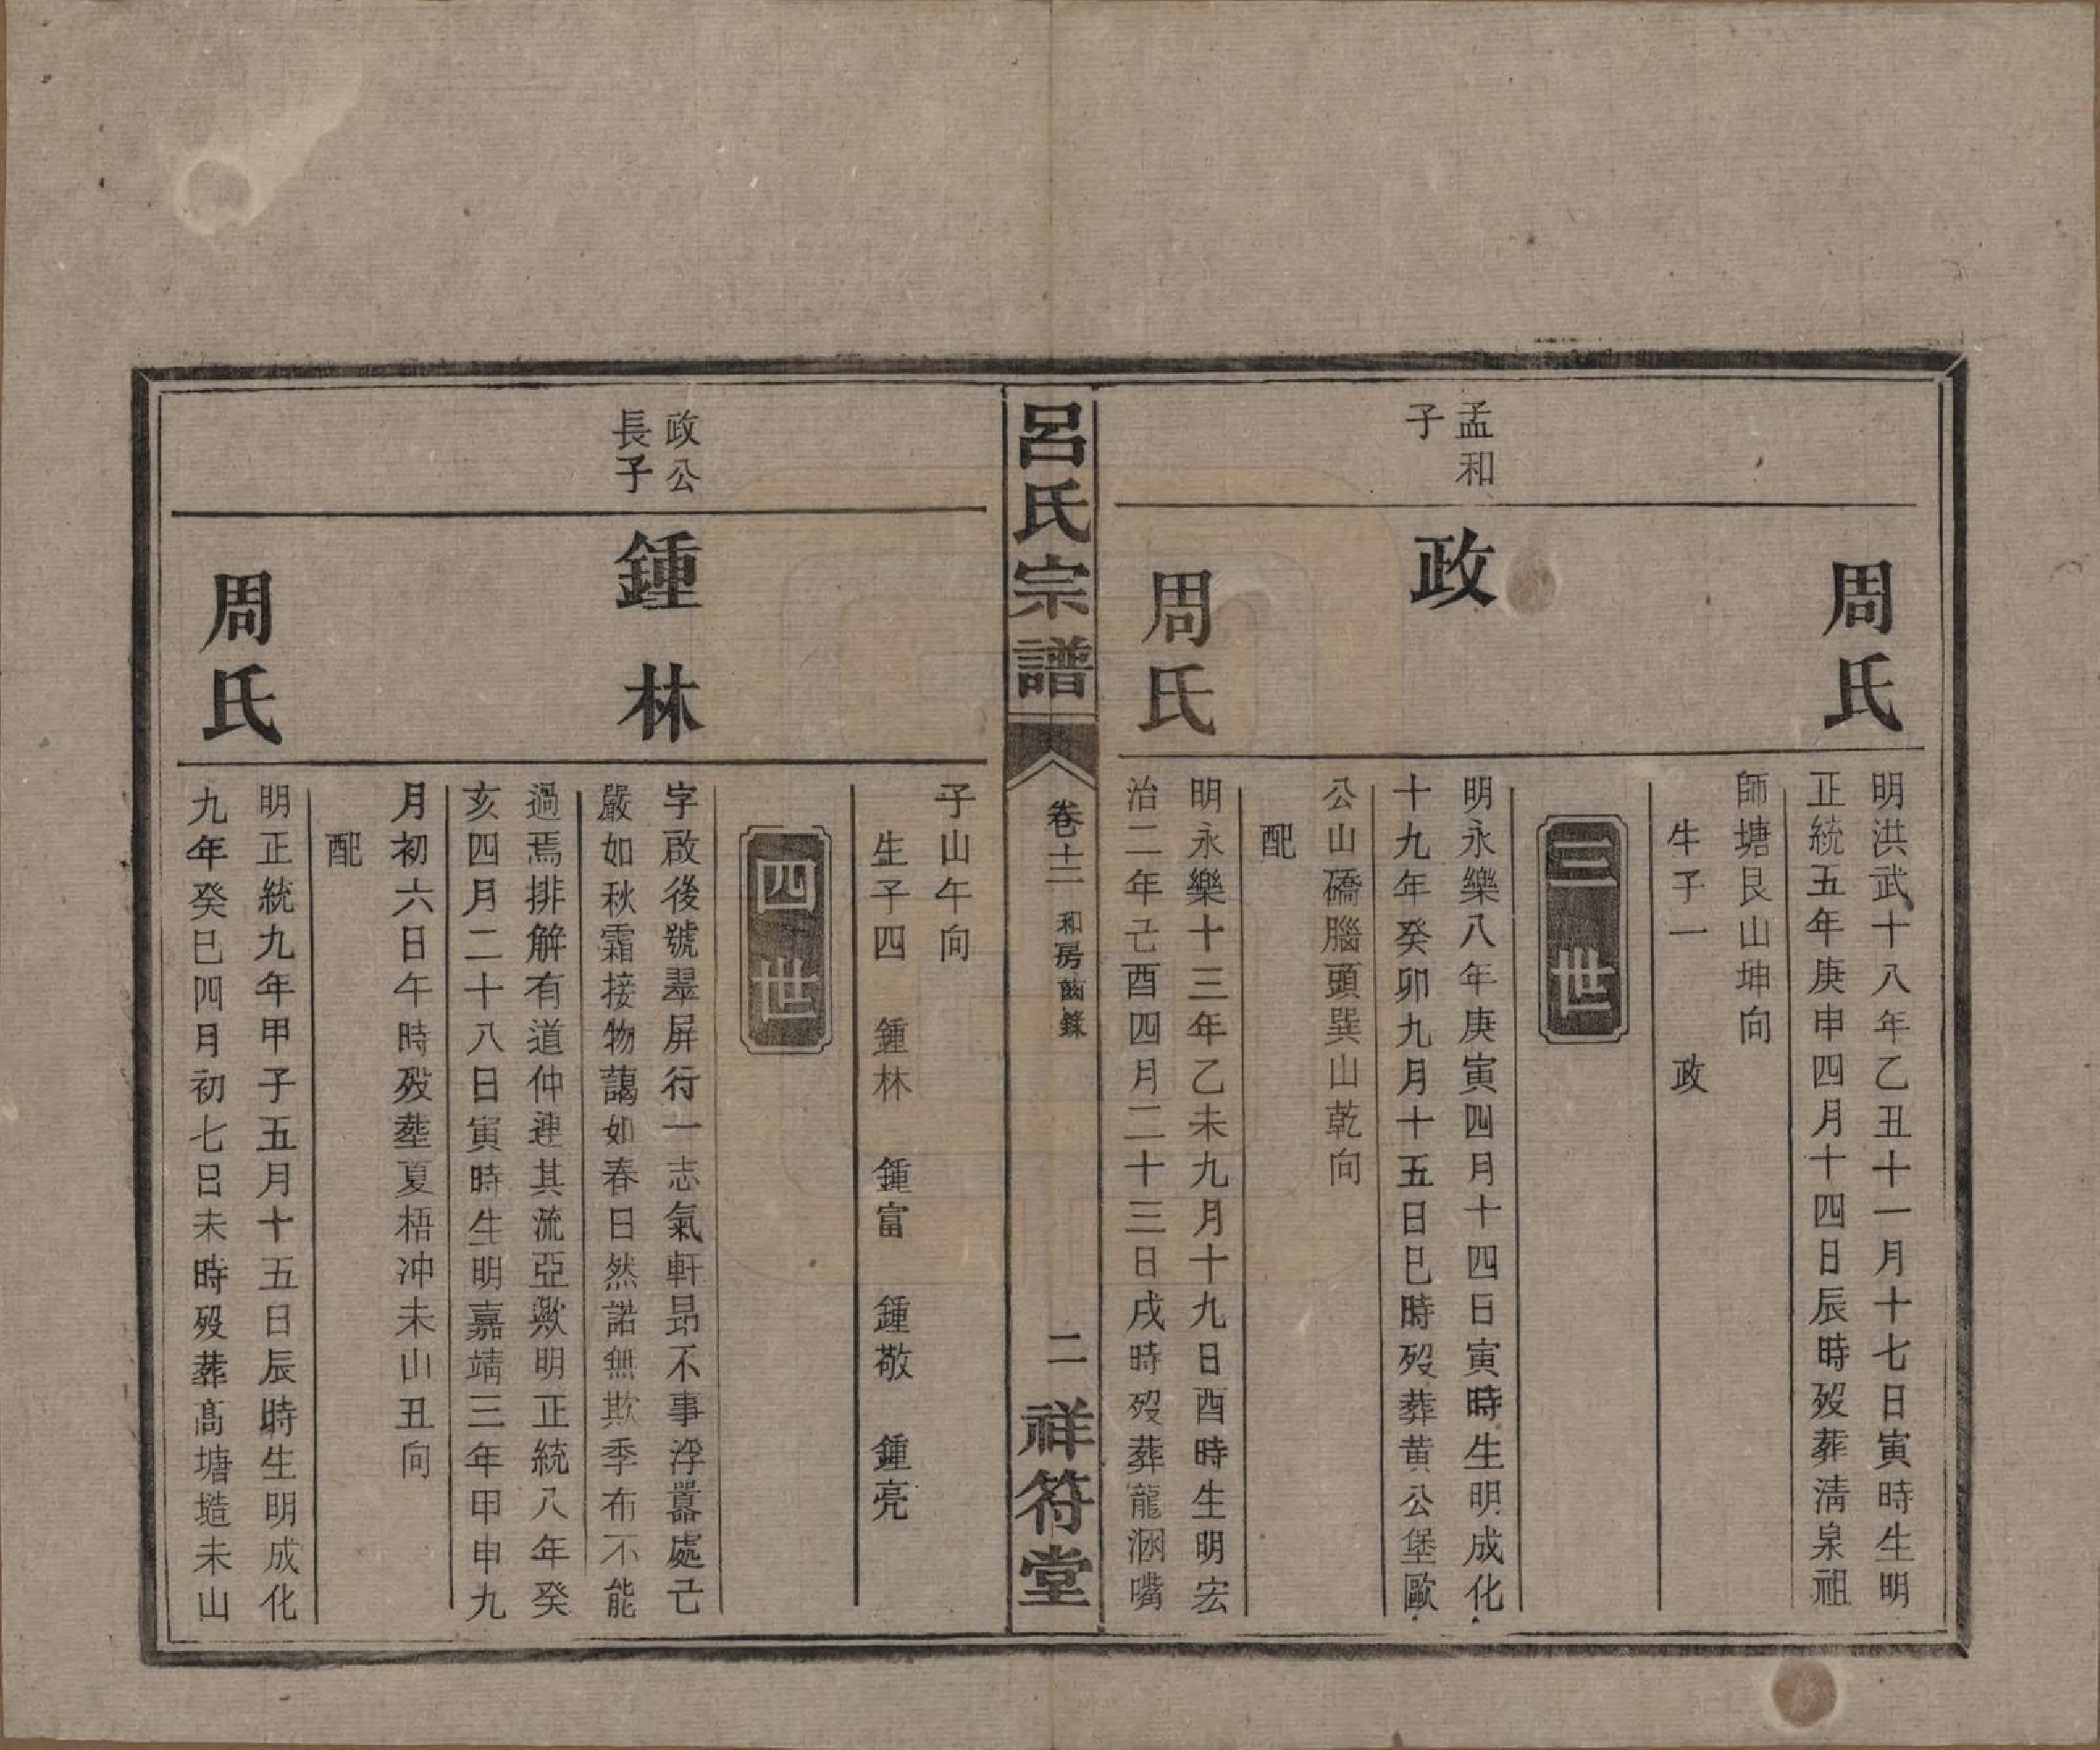 周氏
明洪武十八年乙丑十一月十七日寅時生明
正統五年庚申四月十四日辰時歿葬淸泉祖
師塘艮山坤向
生子一　政
三世
孟和
子
政
明永樂八年庚寅四月十四日寅時生明成化
十九年癸卯九月十五日巳時歿葬黄公堡歐
公山礄腦頭巽山乾向
配
周氏
明永樂十三年乙未九月十九日酉時生明宏
治二年己酉四月二十三日戌時歿葬龍涵嘴
呂氏宗譜
卷十二　和房齒錄
二
祥符堂
子山午向
生子四　鍾林　鍾富　鍾敬　鍾亮
四世
政公
長子
鍾林
字啟後號翠屏行一志氣軒昂不事浮囂處己
嚴如秋霜接物藹如春日然諾無欺季布不能
過焉排解有道仲連其流亞歟明正統八年癸
亥四月二十八日寅時生明嘉靖三年甲申九
月初六日午時歿塟夏梧冲未山丑向
配
周氏
明正統九年甲子五月十五日辰時生明成化
九年癸巳四月初七日未時歿葬髙塘塏未山